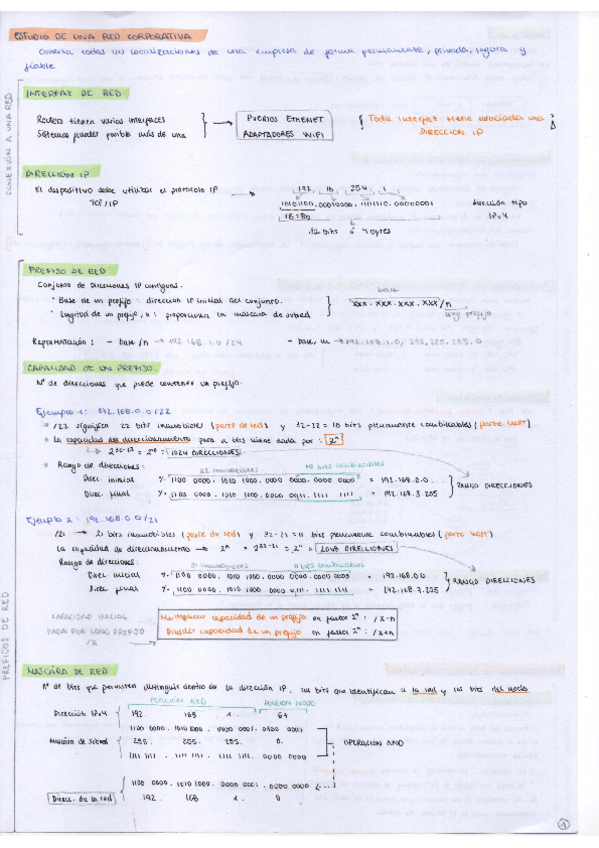 ESTUDIO DE UNA RED CORPORATIVA
Conecta todas las localizaciones de una empresa de forma permanente, privada, segura y
fiable
CONEXIÓN A UNA RED
INTERFAZ DE RED
Routers tienen varios interfaces
Sistemas puedes posible más de una
PUERTOS ETHENET
ADAPTADORES WIFI
¡ Toda interfaz tiene asociada una
DIRECCIÓN IP !
DIRECCIÓN IP
El dispositivo debe utilizar el protocolo IP
TCP/IP
192, 16, 254, 1
.00010000. .00000001
32 bits ó 4 bytes
dirección tipo
IPv4
PREFIJOS DE RED
PREFIJO DE RED
Conjunto de direcciones IP contiguas.
· Base de un prefijo: dirección IP inicial del conjunto.
· Longitud de un prefijo, n: proporciona la máscara de subred
base
xxx.xxx.xxx.xxx/n
long prefijo
Representación: - base/n → 192.168.1.0/24
- base, m → 192.168.1.0, 255.255.255.0
CAPACIDAD DE UN PREFIJO.
Nº de direcciones que puede contener un prefijo.
Ejemplo 1: 192.168.0.0/22
/22 significa 22 bits inamovibles (parte de red) y 32-22=10 bits plenamente combinables (parte host)
La capacidad de direccionamiento para n bits viene dada por: 2ⁿ
= 1024 DIRECCIONES
Rango de direcciones:
22 inamovibles
10 bits combinables
Direc. inicial 1100 0000. 1010 1000. 0000 0000. 0000 0000 = 192.168.0.0
Direc. final 1100 0000. 1010 1000. 0000 0011. 1111 1111 = 192.168.3.255
RANGO DIRECCIONES
Ejemplo 2: 192.168.0.0/21
/21 → 21 bits inamovibles (parte de red) y 32-21=11 bits plenamente combinables (parte host).
La capacidad de direccionamiento → 2ⁿ = 2³²⁻²¹ = 2¹¹ = 2048 DIRECCIONES
Rango de direcciones:
21 inamovibles
11 bits combinables
Direc. inicial 1100 0000. 1010 1000. 0000 0000. 0000 0000 = 192.168.0.0
Direc. final 1100 0000. 1010 1000. 0000 0111. 1111 1111 = 192.168.7.255
RANGO DIRECCIONES
CAPACIDAD INICIAL
DADA POR LONG PREFIJO
/x
Multiplicar capacidad de un prefijo en factor 2ⁿ: /x-n
Dividir capacidad de un prefijo en factor 2ⁿ: /x+n
MASCÁRA DE RED
Nº de bits que permiten distinguir dentro de la dirección IP, los bits que identifican a la red y los bits del nodo
PORCIÓN RED
PORCIÓN NODO
Dirección IPv4 192. 168. 1. 64
1100 0000. 1010 1000. 0000 0001. 0100 0001
Máscara de subred 255. 255. 255. 0.
1111 1111. 1111 1111. 1111 1111. 0000 0000
OPERACION AND
1100 0000. 1010 1000. 0000 0001. 0000 0000
Direc. de la red 192. 168 1. 0
1